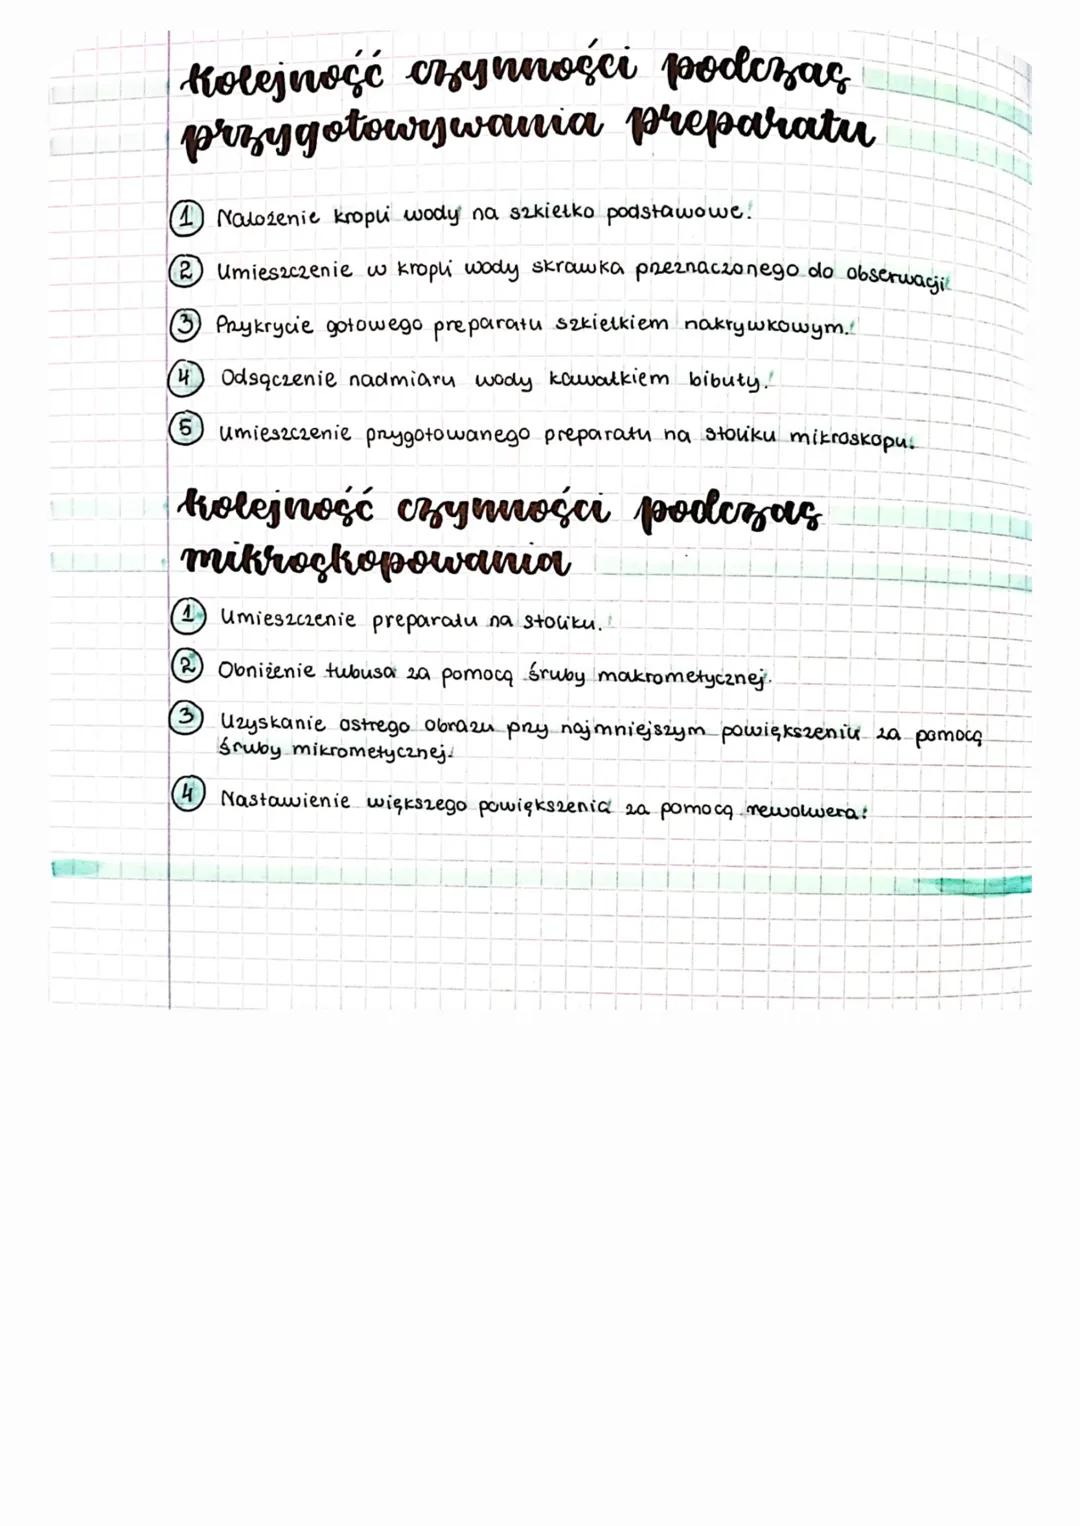 Kolejność czynności podczas
przygotowywania preparatu
1 Nałożenie kropli wody na szkiełko podstawowe.
2 Umieszczenie w kropli wody skrawka przeznaczonego do obserwacji
3 Przykrycie gotowego preparatu szkiełkiem nakrywkowym.
4 Odsączenie nadmiaru wody kawałkiem bibuły.
5 Umieszczenie przygotowanego preparatu na stoliku mikroskopu.
Kolejność czynności podczas
mikroskopowania
1 Umieszczenie preparatu na stoliku.
2 Obniżenie tubusa za pomocą śruby makrometycznej.
3 Uzyskanie ostrego obrazu przy najmniejszym powiększeniu za pomocą
śruby mikrometycznej.
4 Nastawienie większego powiększenia za pomocą rewolwera.